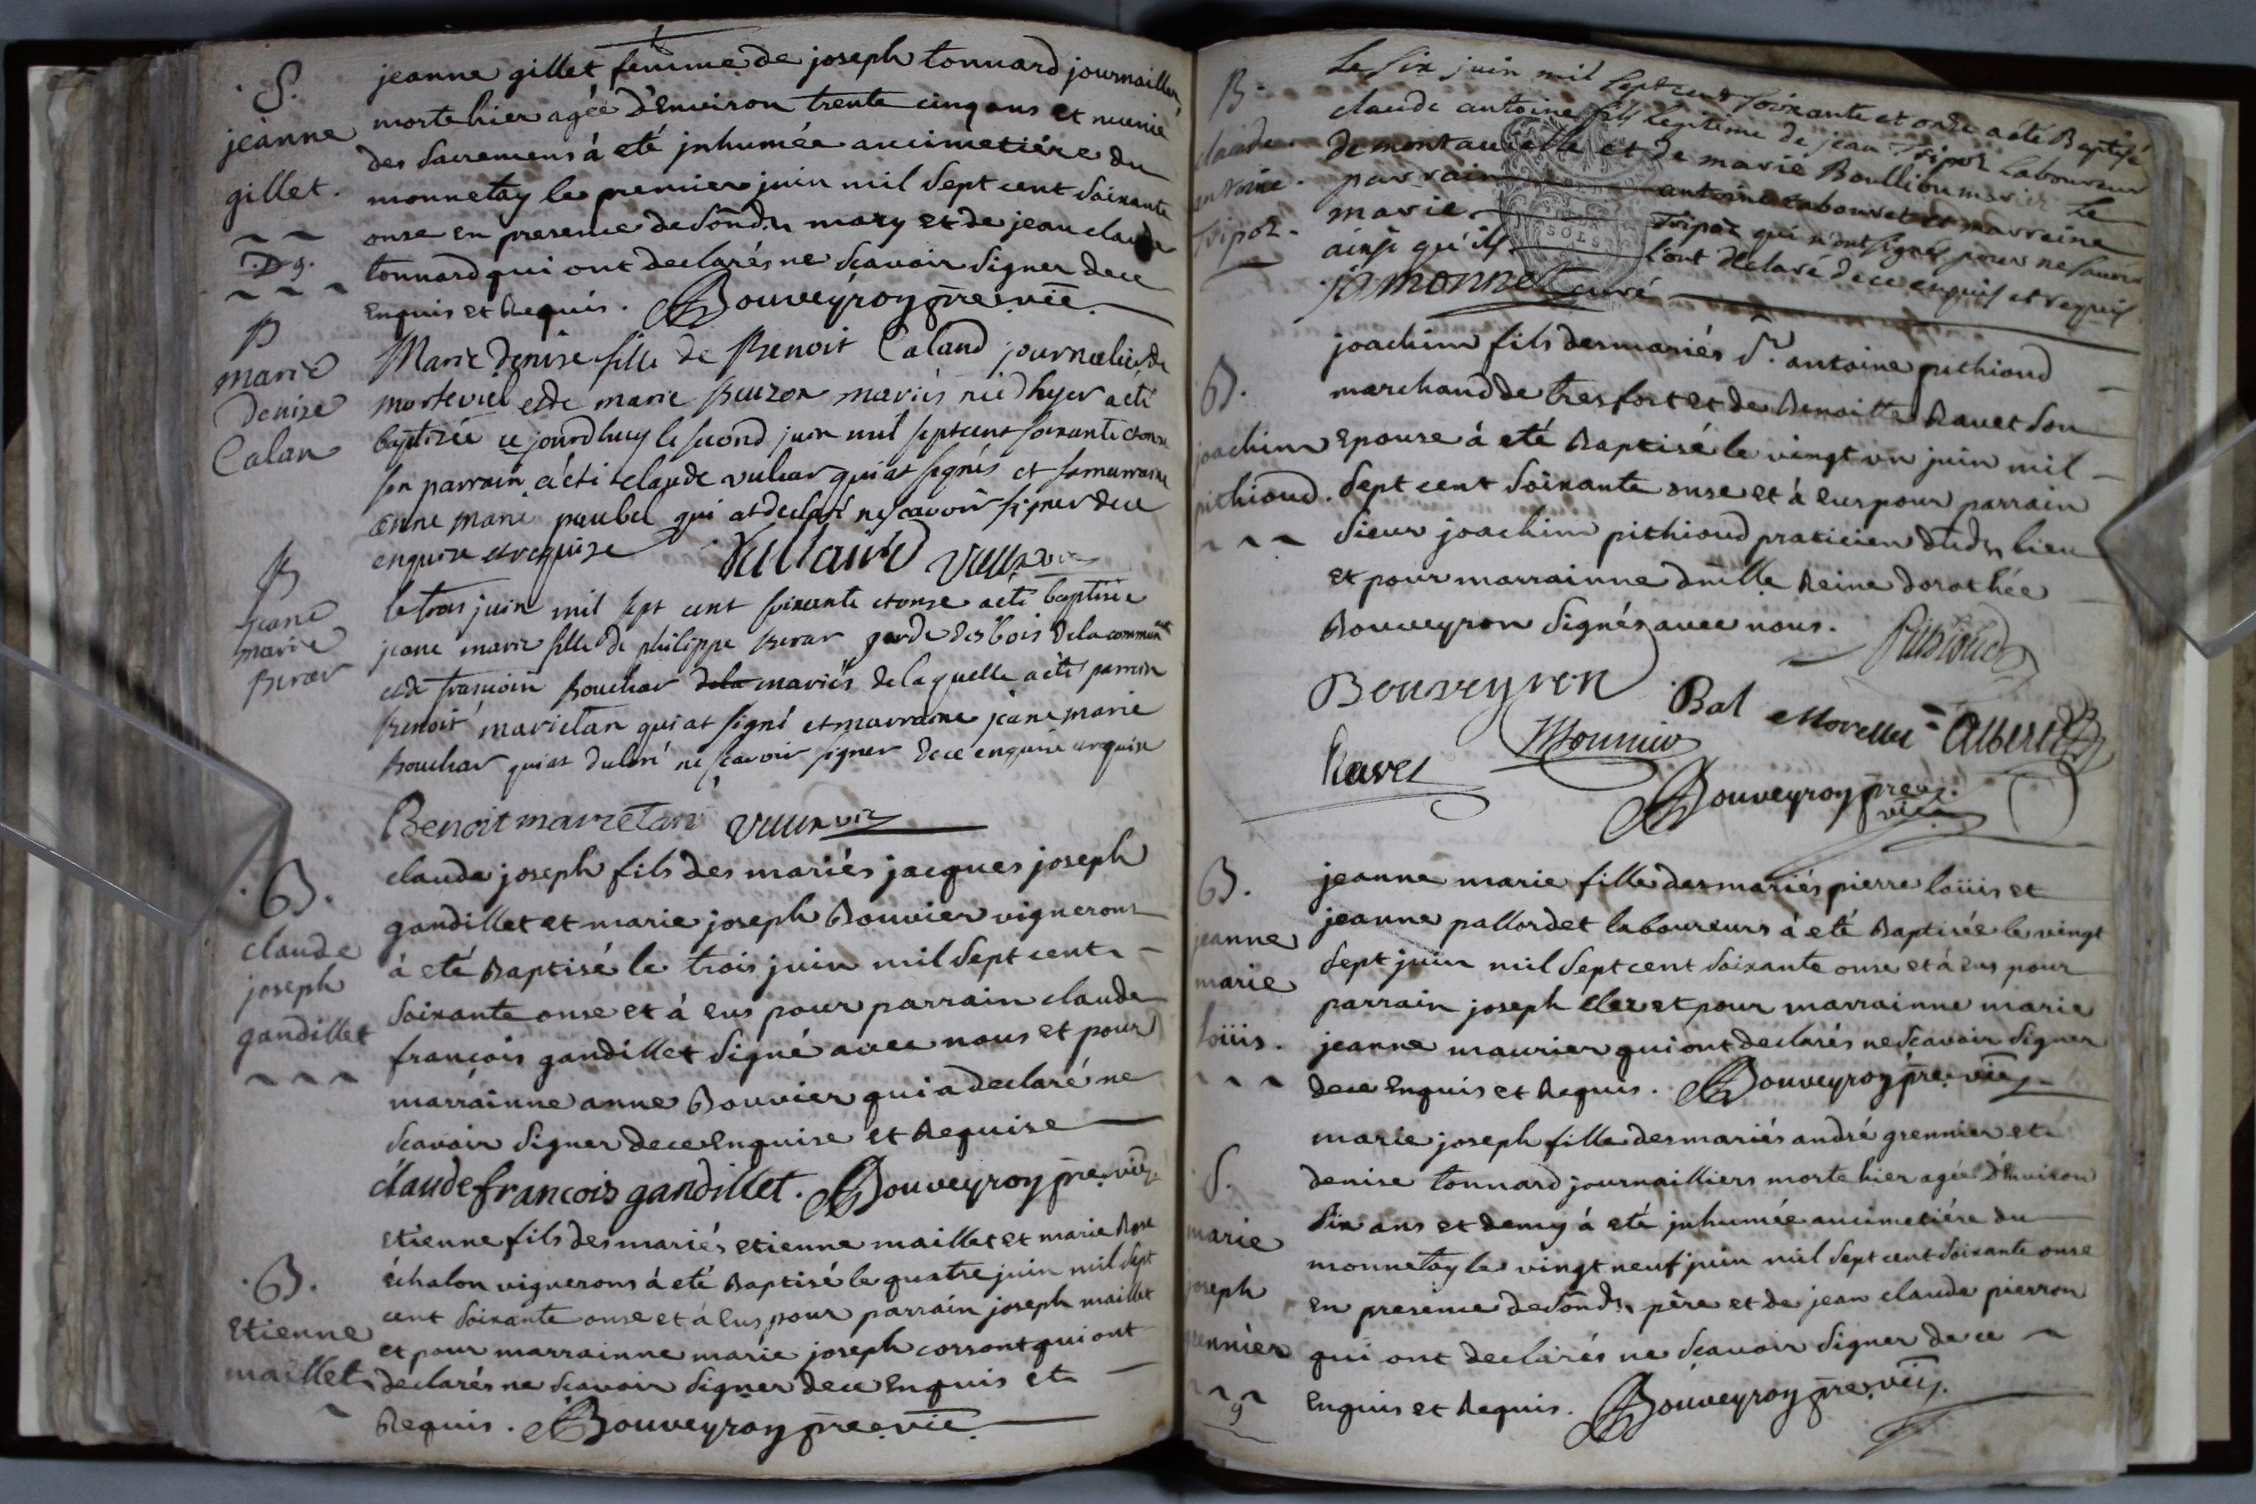 S.
jeanne
gillet.
D 9.
jeanne gillet femme de joseph tonnard journaillier
morte hier agée d'Environ trente cinq ans et munie
des Sacremens á eté jnhumée au cimetiére du
monnetay le premier juin mil Sept cent Soixante
onse en presence de Sond. mary et de jean claude
tonnard qui ont declarés ne Scavoir Signer de ce
Enquis et Requis. Bouveyroy pre. vic.
B
marie
Denise
Calan
Marie Denise fille de Benoit Caland journalier de
morteviel et de marie Buizon mariés née d'hyer a eté
baptizée ce jourd'huy le second juin mil sept cent soixante et onze
son parrain a été claude vuliar qui at signés et sa marraine
anne marie paubel qui at declaré ne scavoir signer de ce
enquise et requise Vuillard
B
jeane
marie
Berar
le trois juin mil sept cent soixante et onse a eté baptisée
jeane marie fille de philippe Berar garde des bois de la communté
et de françoise Bouchar dela mariés de laquelle a été parrain
Benoit marietan qui at signé et marraine jeane marie
Bouchar qui at declaré ne scavoir signer de ce enquise requise
Benoit marietan
B.
claude
joseph
gandillet
claude joseph fils des mariés jacques joseph
gandillet et marie joseph Bouvier vignerons
á eté Baptisé le trois juin mil Sept cent
Soixante onse et á eus pour parrain claude
françois gandillet Signé avec nous et pour
marrainne anne Bouvier qui a declaré ne
Scavoir Signer de ce Enquise et Requise
claude francois gandillet. Bouveyroy pre. vic.
B.
Etienne
maillet
Etienne fils des mariés etienne maillet et marie Rose
échalon vignerons á eté Baptisé le quatre juin mil Sept
cent Soixante onse et á eus pour parrain joseph maillet
et pour marrainne marie joseph corront qui ont
declarés ne Scavoir Signer de ce Enquis et
Requis. Bouveyroy pre. vic.
B.
claude
antoine
Tripoz.
Le six juin mil Sept cent soixante et onze a été Baptisé
claude antoine fils legitime de jean Tripoz Laboureur
de montaucelle et de marie Boullion mariés Le
parrain antoine Labouret et marraine
marie Tripoz qui n'ont signés pour ne Savoir
ainsi qu'ils l'ont déclaré de ce enquis et requis
monnet curé
B.
joachim
pithioud.
joachim fils des mariés Sr. antoine pithioud
marchand de tresfort et de Benoitte Ravet Son
Epouse á eté Baptisé le vingt vn juin mil
Sept cent Soixante onse et á eus pour parrain
Sieur joachim pithioud praticien dud. lieu
et pour marrainne dmlle Reine dorothée
Bouveyron Signés avec nous. Pithioud
Bouveyron Bal Morellet Albert
Ravet Mounier
Bouveyroy pre. vic.
B.
jeanne
marie
loüis.
jeanne marie fille des mariés pierre loüis et
jeanne pallordet laboureurs á eté Baptisée le vingt
Sept juin mil Sept cent Soixante onse et á eus pour
parrain joseph clez et pour marrainne marie
jeanne maurier qui ont declarés ne Scavoir Signer
de ce Enquis et Requis. Bouveyroy pre. vic.
S.
marie
joseph
grennier
9
marie joseph fille des mariés andré grennier et
denise tonnard journailliers morte hier agée d'Environ
Six ans et demy á eté jnhumée au cimetiére du
monnetay le vingt neuf juin mil Sept cent Soixante onse
en presence de Sond. pére et de jean claude pierron
qui ont declarés ne Scavoir Signer de ce
Enquis et Requis. Bouveyroy pre. vic.